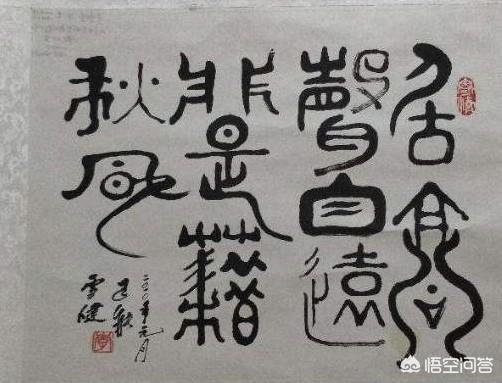 居高
聲自遠
非是藉
秋風
年元月
悟空问答